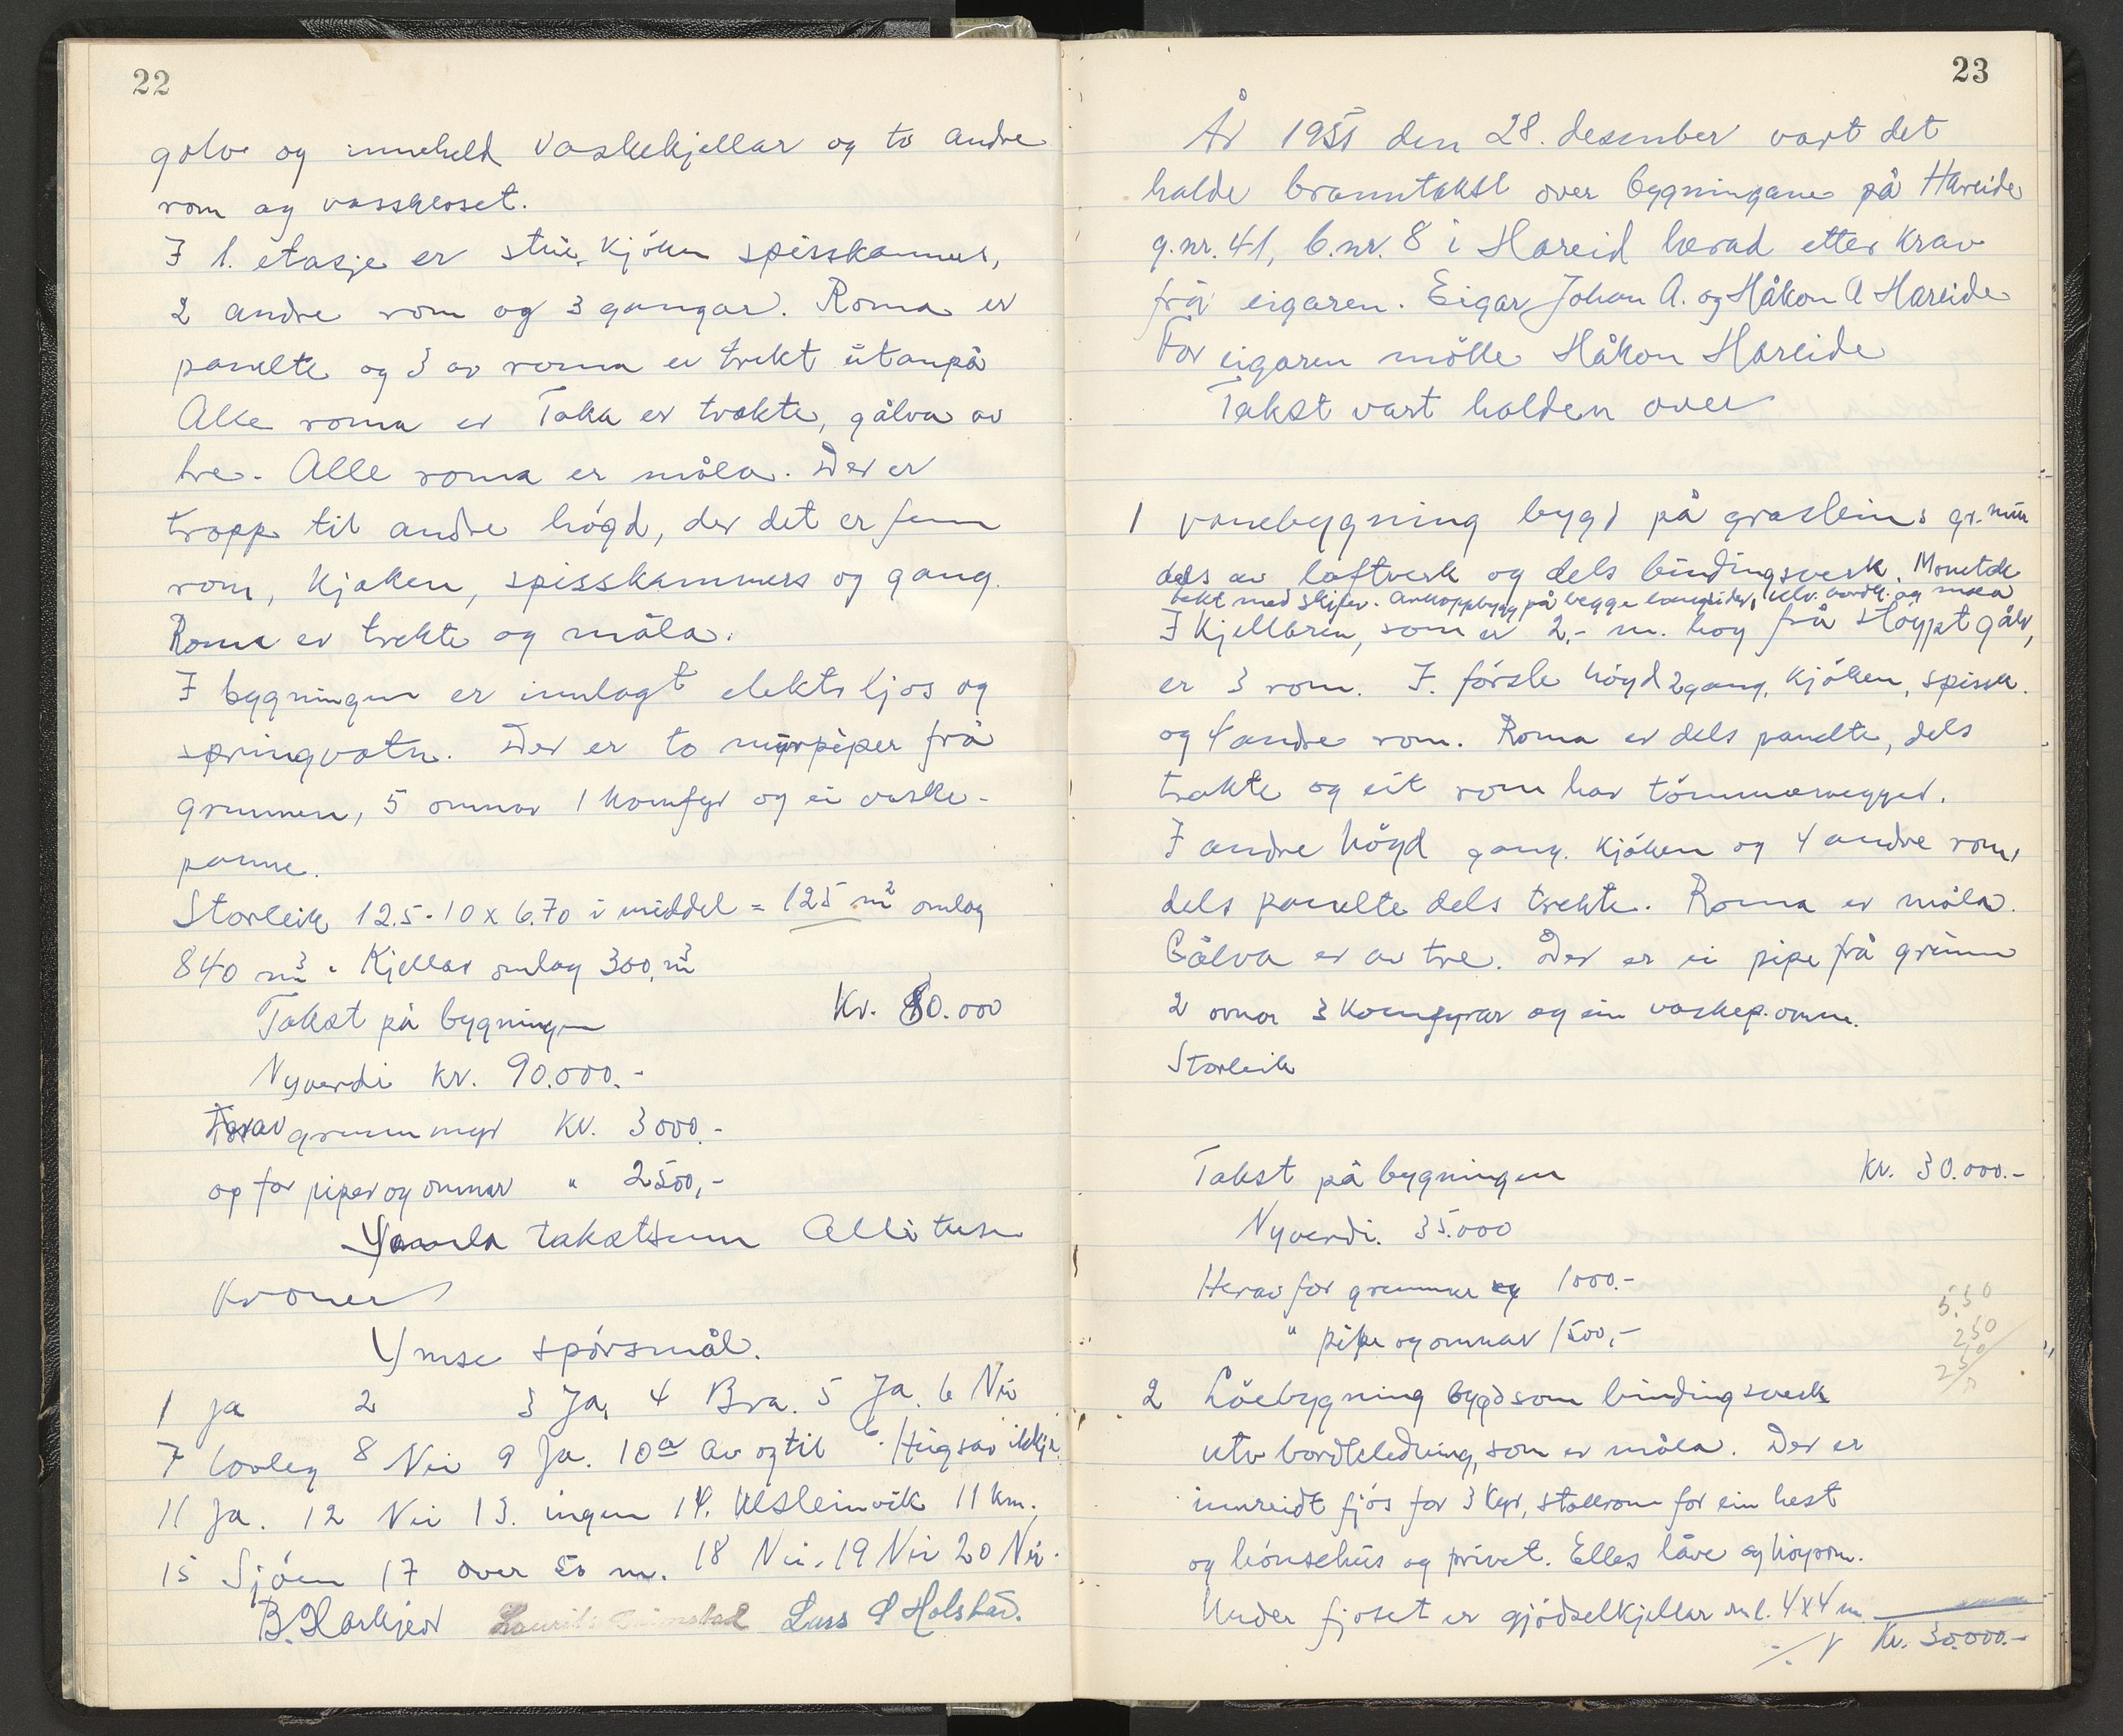 22
golv og inneheld vaskekjellar og to andre
rom og vassklosset.
I 1. etasje er stue, kjöken spisskammers,
2 andre rom og 3 gangar. Roma er
panelte og 3 av roma er trekt utanpå
Alle roma er Taka er trekte, gålva av
tre. Alle roma er måla. Der er
tropp til andre högd, der det er fem
rom, kjøken, spisskammers og gang.
Roma er trekte og måla.
I bygningen er innlagt elektr ljos og
springvatn. Der er to murpiper frå
grunnen, 5 omnar 1 komfyr og ei vaske-
panne.
Storleik 12.5 · 10 x 6.70 i middel = 125 m² omlag
840 m³. Kjellar omlag 300 m³
Takst på bygningen Kr. 80.000
Nyverdi kr. 90.000.-
Herav grunnmur Kr. 3000.-
og for piper og omnar " 2500,-
Samla takstsum Åtti tusen
kroner
Ymse spörsmål.
1 Ja 2 3 Ja, 4 Bra. 5 Ja. 6 Nei
7 lovleg 8 Nei 9 Ja. 10 a av og til b.
11 Ja. 12 Nei 13. ingen 14. Ulsteinvik 11 km.
15 Sjöen 17 over 50 m. 18 Nei. 19 Nei 20 Nei.
Laurits Grimstad Lars
23
År 1955 den 28. desember vart det
halde branntakst over bygningane på Hareide
g.nr. 41, b.nr. 8 i Hareid herad etter krav
frå eigaren. Eigar Johan A. og Håkon A Hareide
For eigaren mötte Håkon Hareide
Takst vart halden over
1 vånebygning bygd på gråsteins gr.mur
dels av loftverk og dels bindingsverk.
tekt med skifer. Arkoppbygg på begge langsider, utv. bordk. og måla
I kjellaren, som er 2,- m. høg frå støypt gålv,
er 3 rom. I förste högd 2 gang, kjöken, spissk.
og 4 andre rom. Roma er dels panelte, dels
trekte og eit rom har tömmervegger.
I andre högd gang, kjöken og 4 andre rom,
dels panelte dels trekte. Roma er måla.
Gålva er av tre. Der er ei pipe frå grunn
2 ovnar 3 komfyrar og ein vaskep. omn.
Storleik
Takst på bygningen Kr. 30.000.-
Nyverdi. 35.000
Herav for grunnmur 1000.-
" pipe og omnar 1500,-
5.50
250
250
2 Löebygning bygd som bindingsverk
utv bordkledning, som er måla. Der er
innreidt fjös for 3 kyr, stallrom for ein hest
og hönsehus og privet. Elles låve og höyrom.
Under fjoset er gjödselkjellar oml. 4x4 m
Kr. 30.000.-